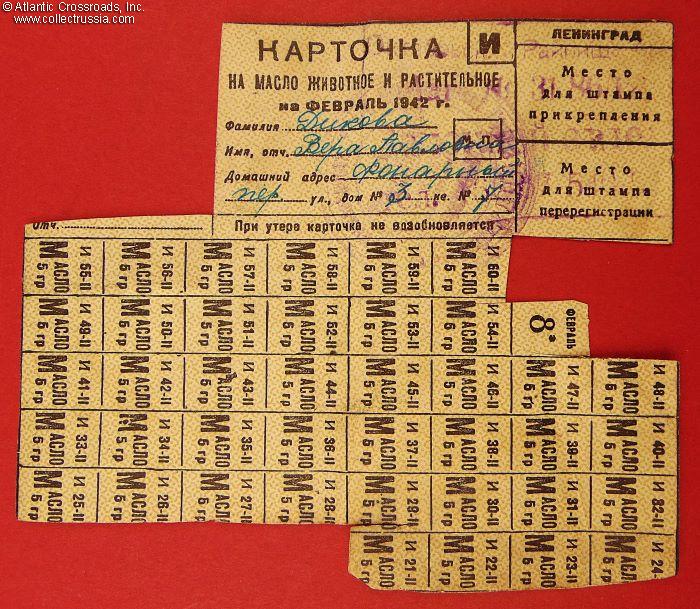 © Atlantic Crossroads, Inc.
www.collectrussia.com
КАРТОЧКА
И
НА МАСЛО ЖИВОТНОЕ И РАСТИТЕЛЬНОЕ
на ФЕВРАЛЬ 1942 г.
Фамилия Дикова
Имя, отч. Вера Павловна
М.П.
Домашний адрес Фонарный
пер. ул., дом № 3 кв. № 7
При утере карточка не возобновляется
ЛЕНИНГРАД
Место
для штампа
прикрепления
Место
для штампа
перерегистрации
Отч.
И 55-II Масло 5 гр
И 56-II Масло 5 гр
И 57-II Масло 5 гр
И 58-II Масло 5 гр
И 59-II Масло 5 гр
И 60-II Масло 5 гр
И 49-II Масло 5 гр
И 50-II Масло 5 гр
И 51-II Масло 5 гр
И 52-II Масло 5 гр
И 53-II Масло 5 гр
И 54-II Масло 5 гр
ФЕВРАЛЬ
8
И 41-II Масло 5 гр
И 42-II Масло 5 гр
И 43-II Масло 5 гр
И 44-II Масло 5 гр
И 45-II Масло 5 гр
И 46-II Масло 5 гр
И 47-II Масло 5 гр
И 48-II Масло 5 гр
И 33-II Масло 5 гр
И 34-II Масло 5 гр
И 35-II Масло 5 гр
И 36-II Масло 5 гр
И 37-II Масло 5 гр
И 38-II Масло 5 гр
И 39-II Масло 5 гр
И 40-II Масло 5 гр
И 25-II Масло 5 гр
И 26-II Масло 5 гр
И 27-II Масло 5 гр
И 28-II Масло 5 гр
И 29-II Масло 5 гр
И 30-II Масло 5 гр
И 31-II Масло 5 гр
И 32-II Масло 5 гр
И 21-II Масло 5 гр
И 22-II Масло 5 гр
И 23-II Масло 5 гр
И 24- Масло 5 гр